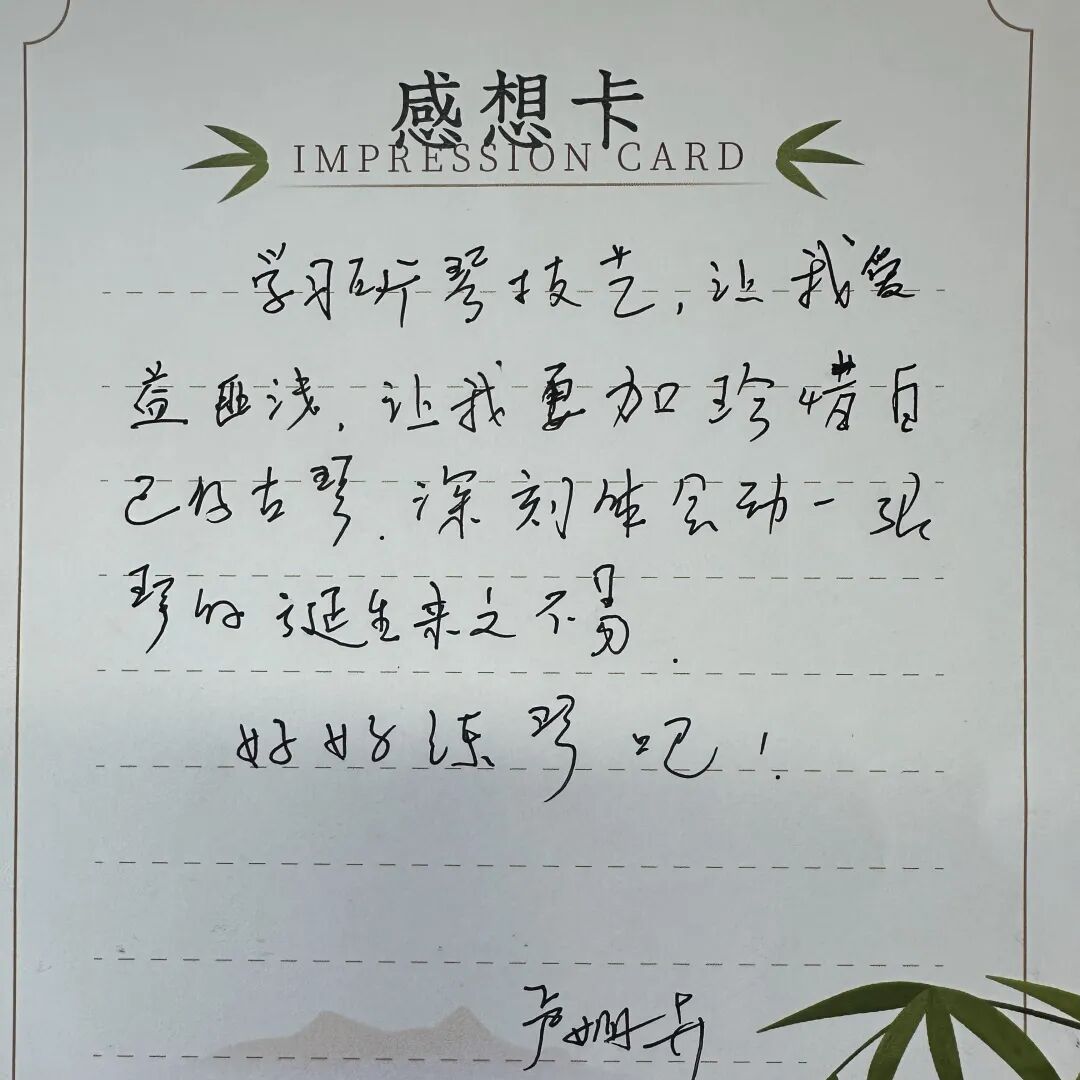 感想卡
IMPRESSION CARD
学习斫琴技艺，让我受
益匪浅，让我更加珍惜自
己的古琴．深刻体会动一张
琴的诞生来之不易．
好好练琴吧！